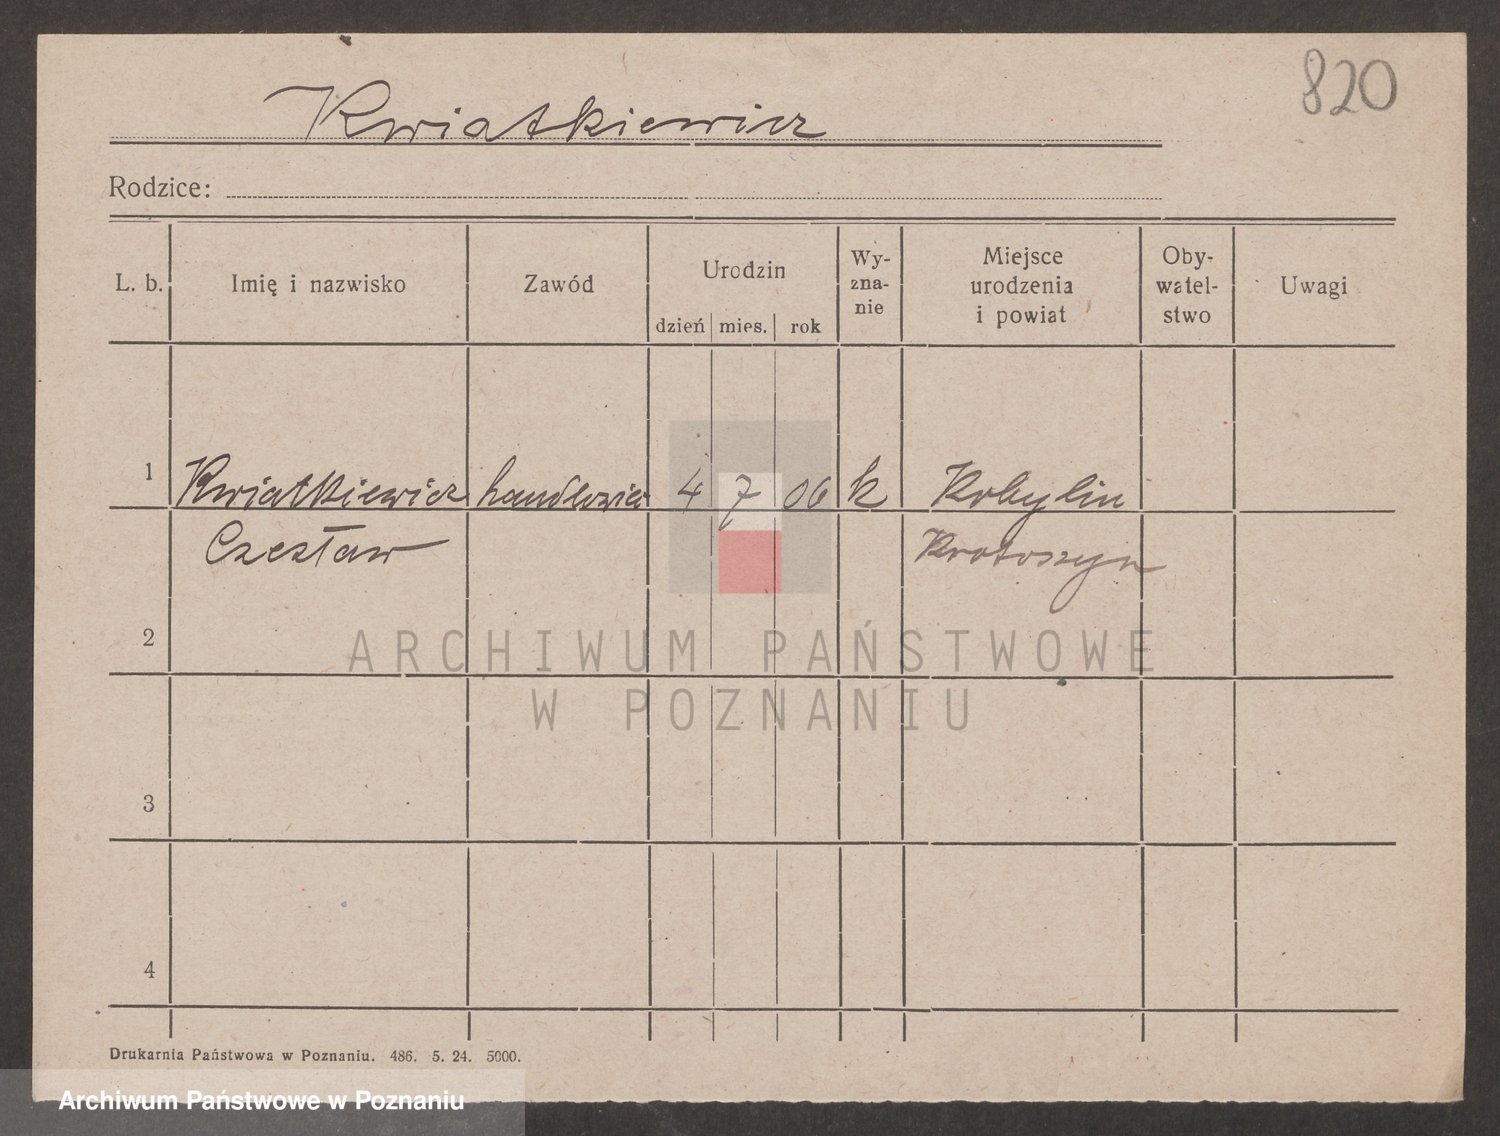 820
Kwiatkiewicz
Rodzice:
L. b.
Imię i nazwisko
Zawód
Urodzin
dzień
mies.
rok
Wy-
zna-
nie
Miejsce
urodzenia
i powiat
Oby-
watel-
stwo
Uwagi
1 Kwiatkiewicz handlowiec 4 7 06 k Kobylin
Czesław Krotoszyn
2
ARCHIWUM PAŃSTWOWE
W POZNANIU
3
4
Drukarnia Państwowa w Poznaniu. 486. 5. 24. 5000.
Archiwum Państwowe w Poznaniu